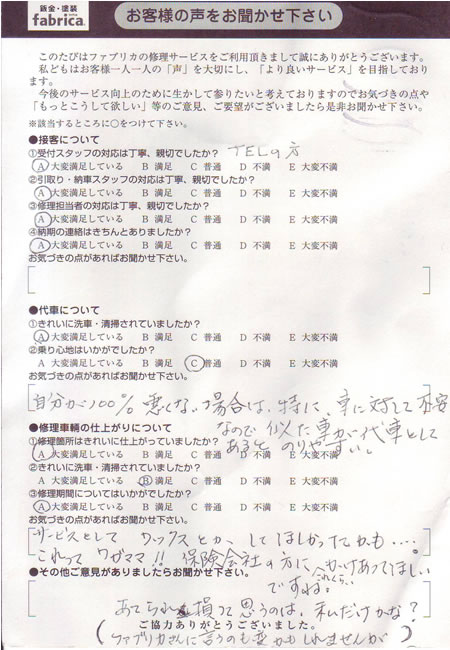 鈑金・塗装
fabrica.
お客様の声をお聞かせ下さい
このたびはファブリカの修理サービスをご利用頂きまして誠にありがとうございます。
私どもはお客様一人一人の「声」を大切にし、「より良いサービス」を目指しております。
今後のサービス向上のために生かして参りたいと考えておりますのでお気づきの点や
「もっとこうして欲しい」等のご意見、ご要望がございましたら是非お聞かせ下さい。
※該当するところに○をつけて下さい。
●接客について
①受付スタッフの対応は丁寧、親切でしたか? TELの方
A 大変満足している B 満足 C 普通 D 不満 E 大変不満
②引取り・納車スタッフの対応は丁寧、親切でしたか?
A 大変満足している B 満足 C 普通 D 不満 E 大変不満
③修理担当者の対応は丁寧、親切でしたか?
A 大変満足している B 満足 C 普通 D 不満 E 大変不満
④納期の連絡はきちんとありましたか?
A 大変満足している B 満足 C 普通 D 不満 E 大変不満
お気づきの点があればお聞かせ下さい。
●代車について
①きれいに洗車・清掃されていましたか?
A 大変満足している B 満足 C 普通 D 不満 E 大変不満
②乗り心地はいかがでしたか?
A 大変満足している B 満足 C 普通 D 不満 E 大変不満
お気づきの点があればお聞かせ下さい。
自分が100% 悪くない場合は、特に、車に対して不安
なので 似た車が代車として
あると のりやすい。
●修理車輌の仕上がりについて
①修理箇所はきれいに仕上がっていましたか?
A 大変満足している B 満足 C 普通 D 不満 E 大変不満
②きれいに洗車・清掃されていましたか?
A 大変満足している B 満足 C 普通 D 不満 E 大変不満
③修理期間についてはいかがでしたか?
A 大変満足している B 満足 C 普通 D 不満 E 大変不満
お気づきの点があればお聞かせ下さい。
サービスとして ワックスとか、してほしかったかも....
これって ワガママ!! 保険会社の方に かけあってほしい
これくらい
ですね。
●その他ご意見がありましたらお聞かせ下さい。
あてられ損って思うのは、私だけかな?
ご協力ありがとうございました。
(ファブリカさんに言うのも変かもしれませんが)